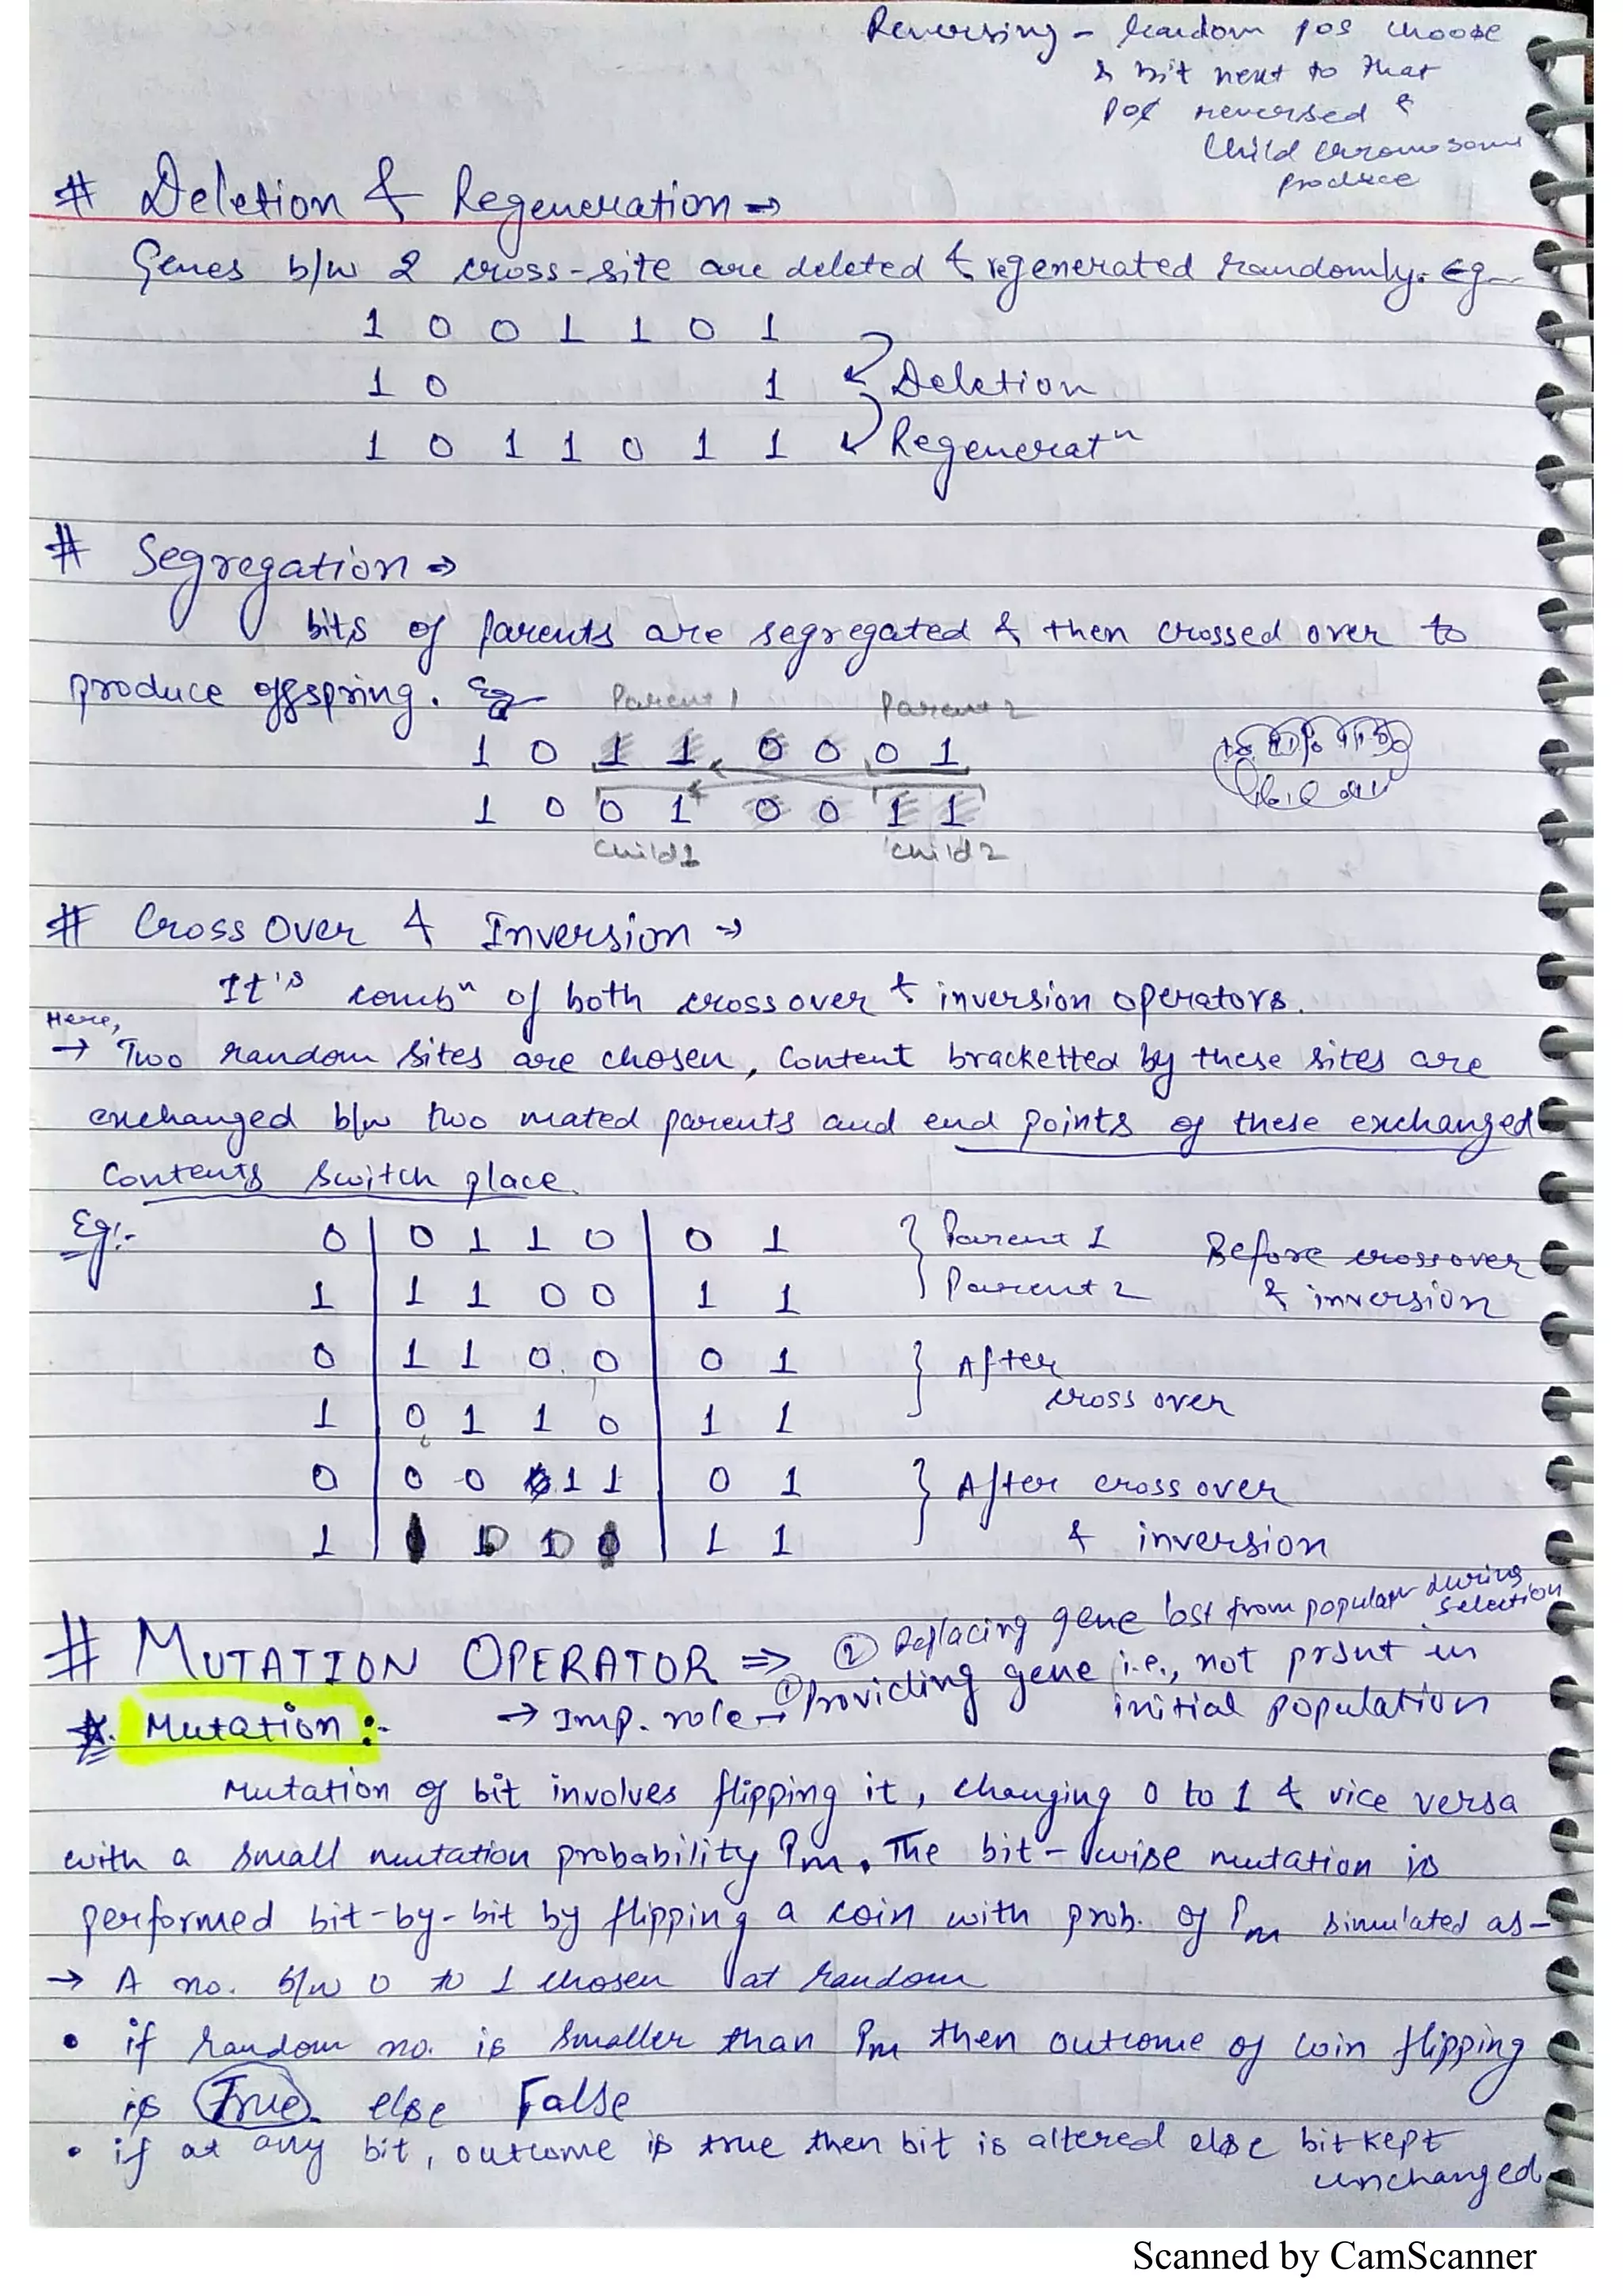 Reversing - Random pos choose
& bit next to that
pos reversed &
Child chromosome
produce
# Deletion & Regeneration →
Genes b/w 2 cross-site are deleted & regenerated randomly. Eg-
1 0 0 1 1 0 1
1 0 1 Deletion
1 0 1 1 0 1 1 Regeneratn
# Segregation →
bits of parents are segregated & then crossed over to
produce offspring. Eg-
Parent 1 Parent 2
1 0 1 1 0 0 0 1
1 0 0 1 0 0 1 1
Child 1 Child 2
# Cross Over & Inversion →
It's combn of both cross over & inversion operators.
Here,
→ Two random sites are chosen, Content bracketted by these sites are
exchanged b/w two mated parents and end points of these exchanged
Contents switch place.
Eg:- 0 | 0 1 1 0 | 0 1 } Parent 1 Before crossover
1 | 1 1 0 0 | 1 1 Parent 2 & inversion
0 | 1 1 0 0 | 0 1 } After
1 | 0 1 1 0 | 1 1 cross over
0 | 0 0 1 1 | 0 1 } After cross over
1 | 1 1 & inversion
# MUTATION OPERATOR ⇒ ② Replacing gene lost from populatn during selection
Mutation:- → Imp. role → ① Providing gene i.e., not prsnt in
initial population
Mutation of bit involves flipping it, changing 0 to 1 & vice versa
with a small mutation probability Pm. The bit-wise mutation is
performed bit-by-bit by flipping a coin with prob. of Pm simulated as-
→ A no. b/w 0 to 1 chosen at random
• if random no. is smaller than Pm then outcome of coin flipping
is True else False
• if at any bit, outcome is true then bit is altered else bit kept
unchanged.
Scanned by CamScanner